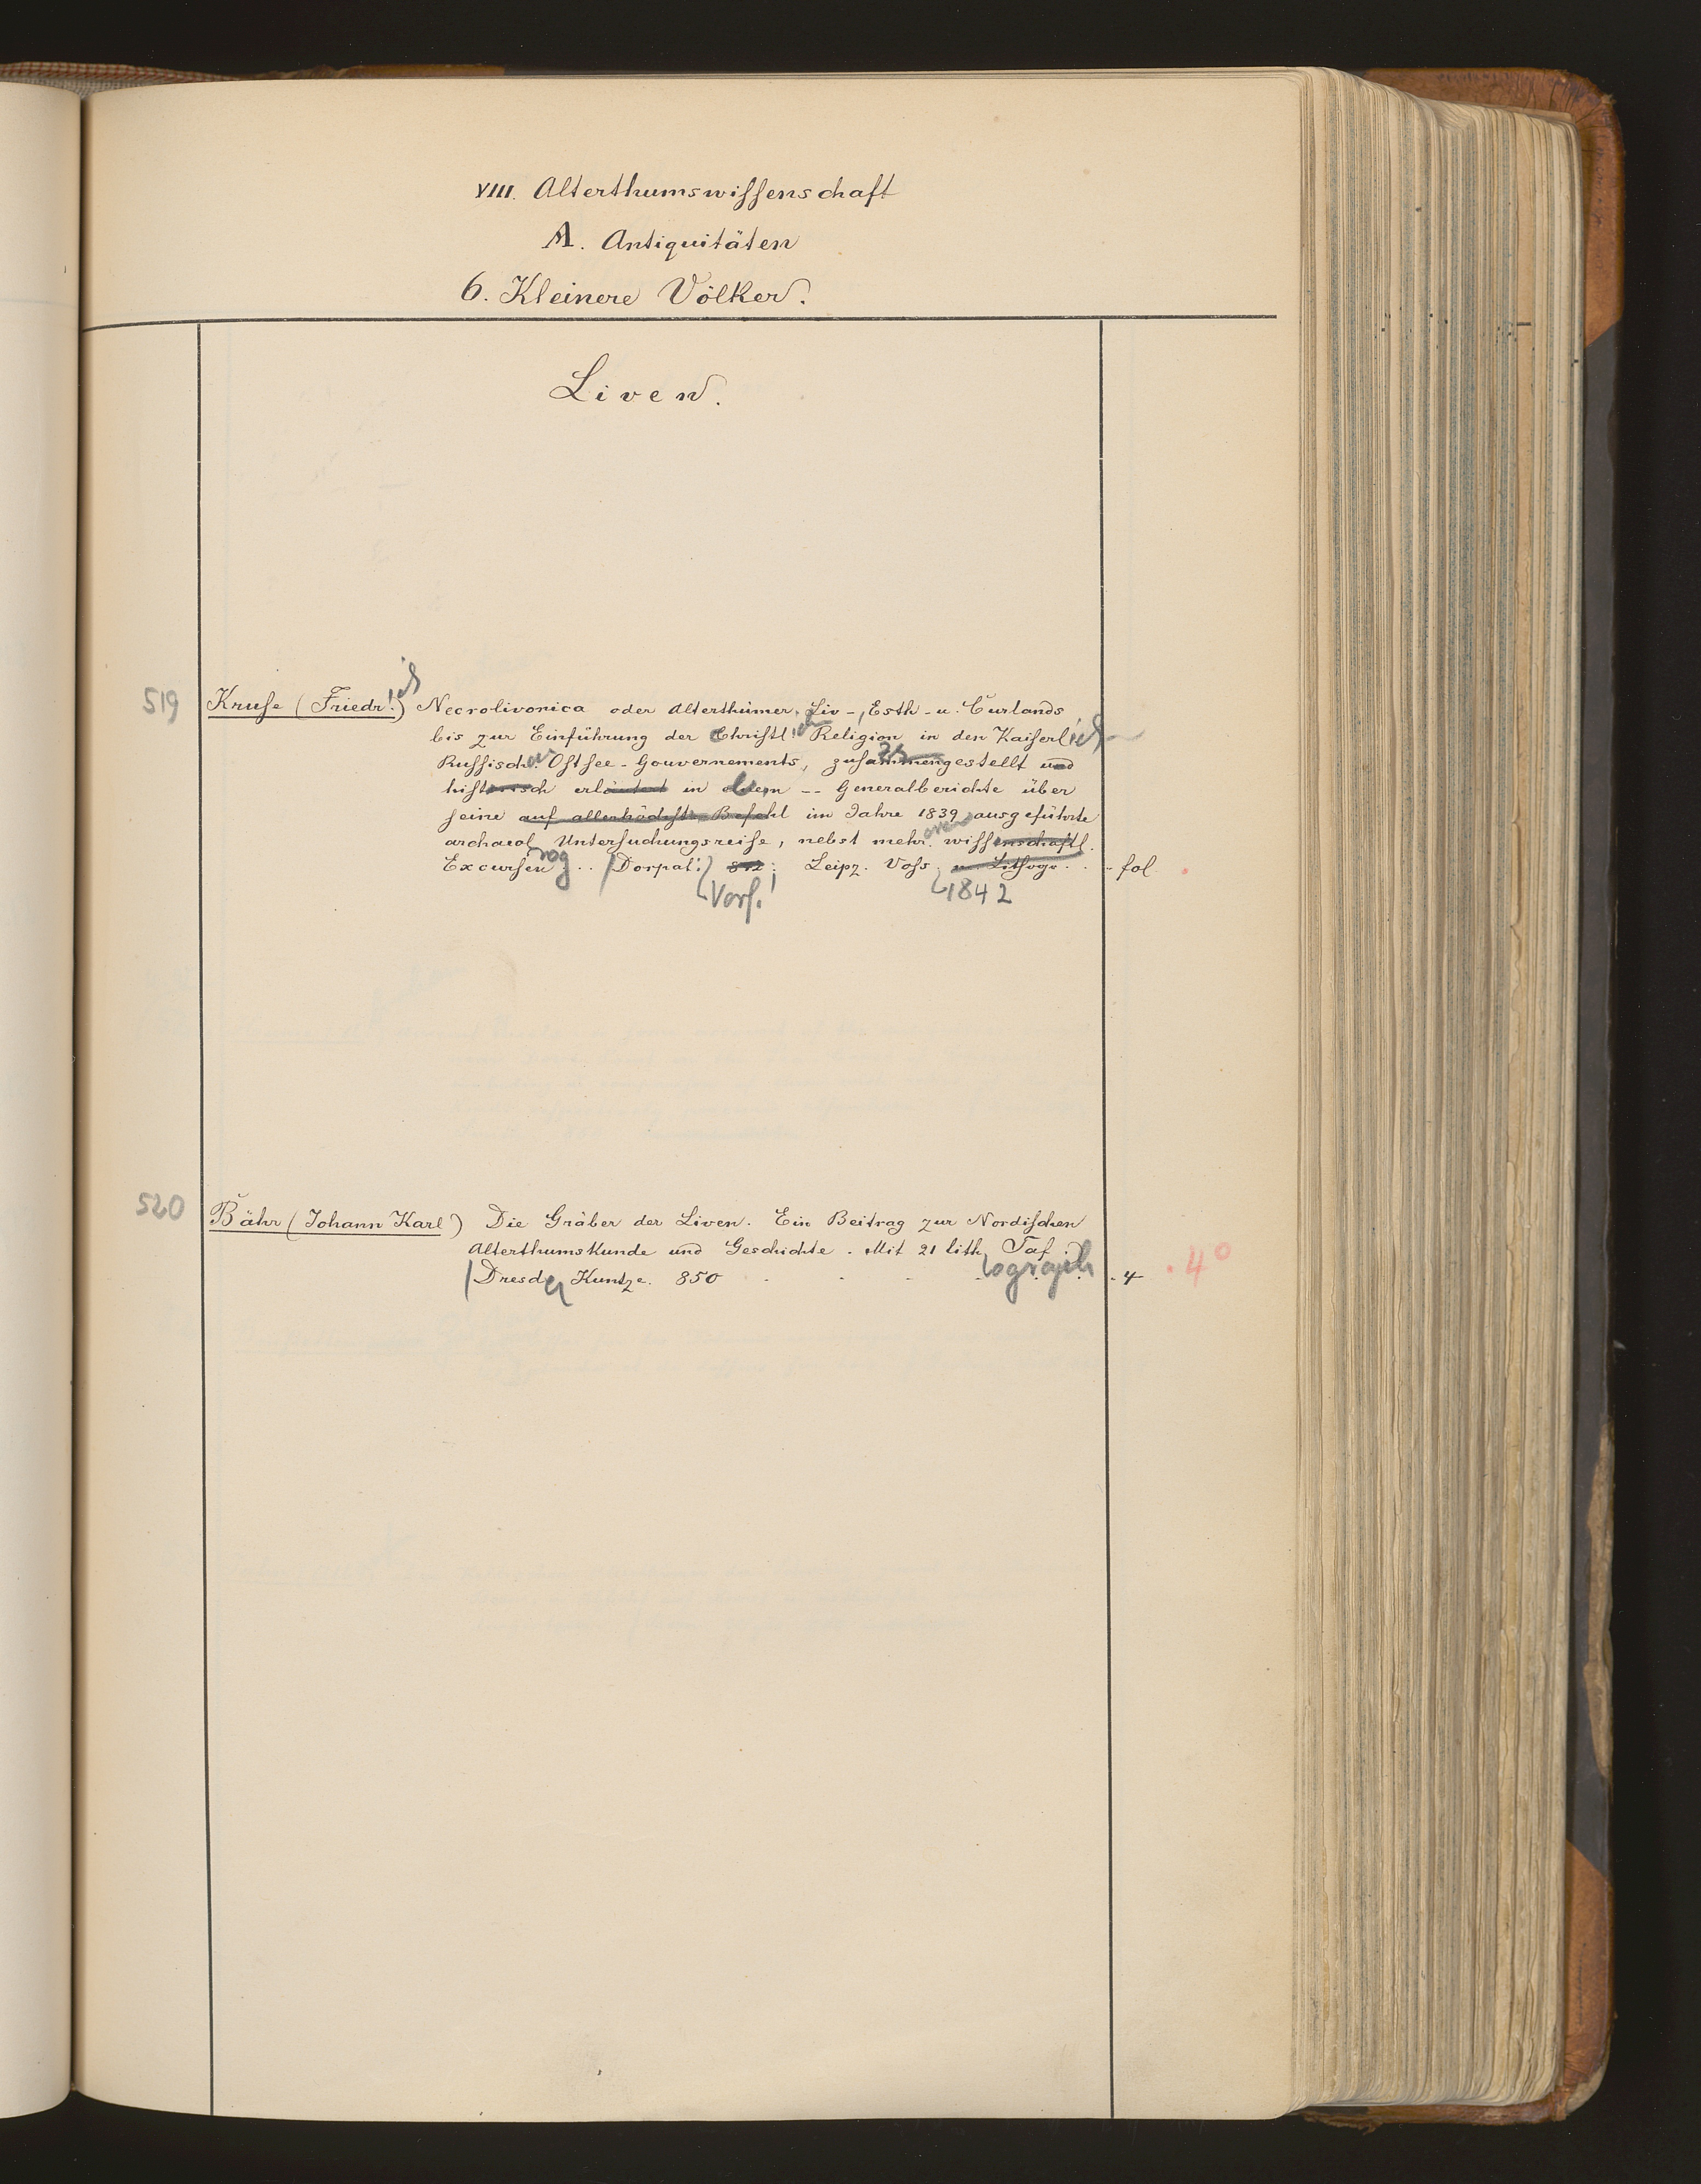 VIII. Alterthumswissenschaft
A. Antiquitäten
6. Kleinere Völker.
Liven.
519 Kruse (Friedr.) Necrolivonica oder Alterthümer Liv-, Esth- u. Curlands
bis zur Einführung der Christl. Religion in den Kaiserl.
Russischen Ostsee-Gouvernements, zusammengestellt und
historisch erläutert in einem -- Generalberichte über
seine auf allerhöchst. Befehl im Jahre 1839 ausgeführte
archaeol. Untersuchungsreise, nebst mehr. wissenschaftl.
Excursen .. Dorpat: 842. Leipz. Voss. u. Lithogr. . . fol.
Verf. 1842
520 Bähr (Johann Karl) Die Gräber der Liven. Ein Beitrag zur Nordischen
Alterthumskunde und Geschichte. Mit 21 lith. Taf.
Dresd. Kuntze. 850 . . . . ograph . 4 . 4°